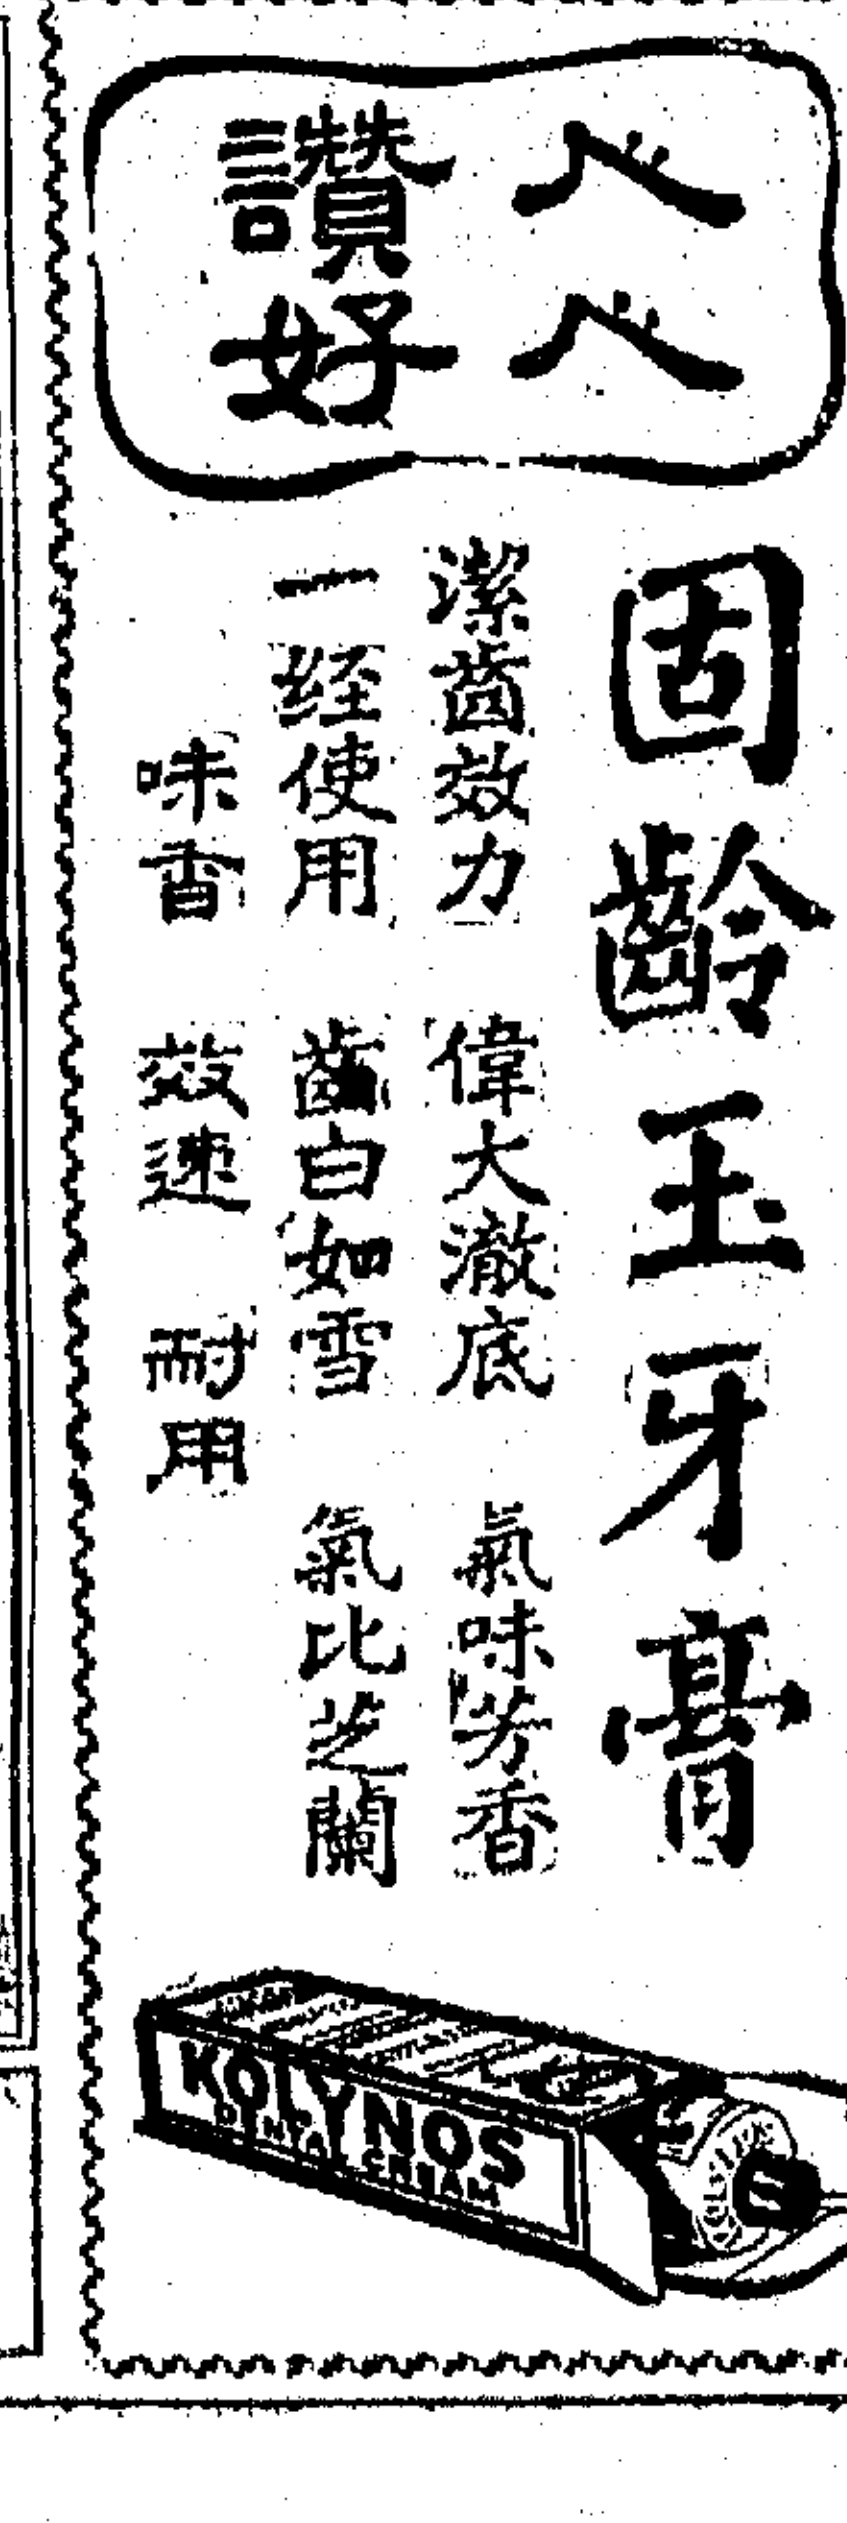 人人
讚好
固齡玉牙膏
潔齒效力 偉大澈底 氣味芳香
一經使用 齒白如雪 氣比芝蘭
味香 效速 耐用
KOLYNOS
DENTAL CREAM